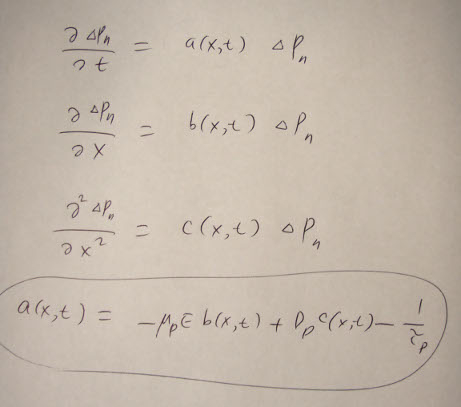 ∂ΔPn/∂t = a(x,t) ΔPn
∂ΔPn/∂x = b(x,t) ΔPn
∂²ΔPn/∂x² = c(x,t) ΔPn
a(x,t) = -μpE b(x,t) + Dp c(x,t) - 1/τp